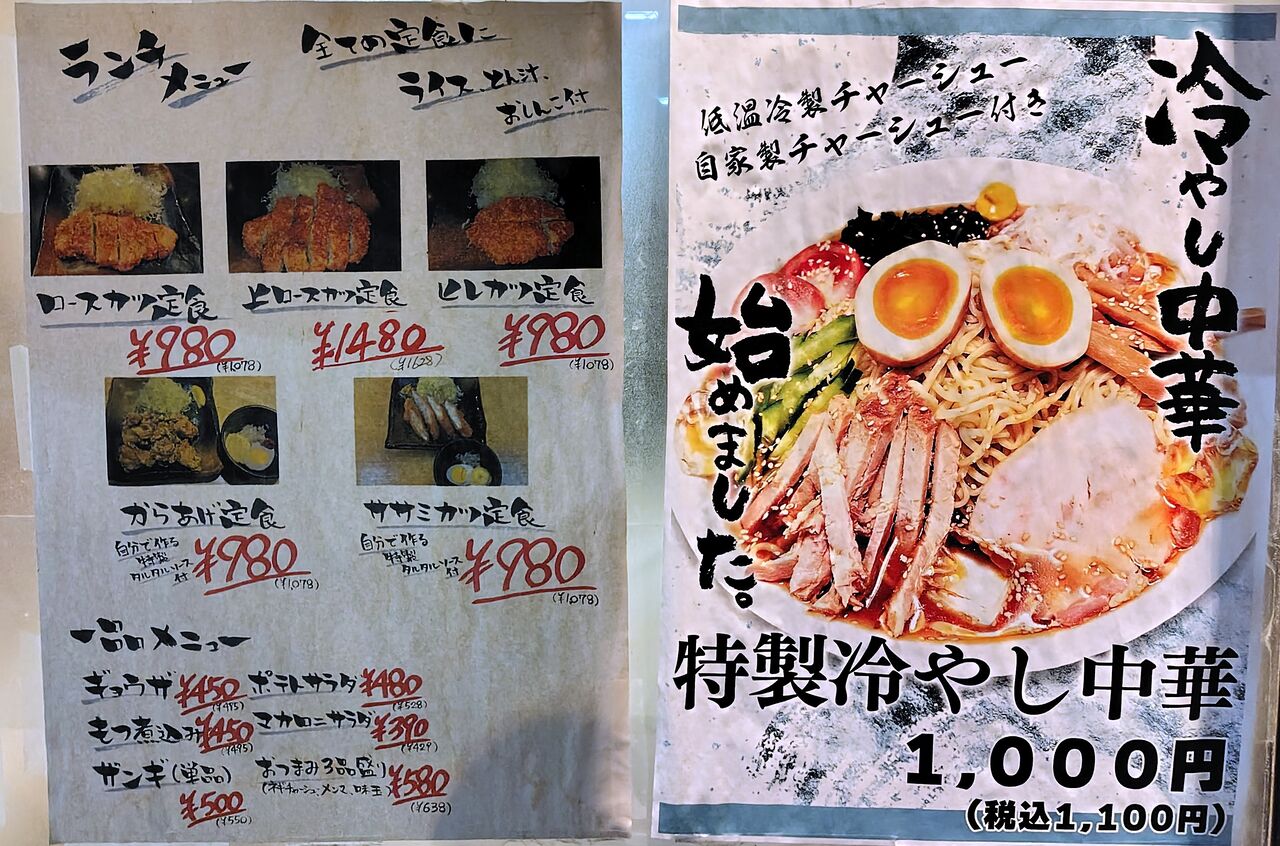 ランチ
メニュー
全ての定食に
ライス、とん汁、
おしんこ付
ロースカツ定食
¥980
(¥1,078)
上ロースカツ定食
¥1480
(¥1628)
ヒレカツ定食
¥980
(¥1078)
からあげ定食
自分で作る
特製
タルタルソース
付
¥980
(¥1,078)
ササミカツ定食
自分で作る
特製
タルタルソース
付
¥980
(¥1,078)
一品メニュー
ギョウザ ¥450
(¥495)
ポテトサラダ ¥480
(¥528)
もつ煮込み ¥450
(¥495)
マカロニサラダ ¥390
(¥429)
ザンギ(単品)
¥500
(¥550)
おつまみ3品盛り
(ネギチャーシュ、メンマ、味玉)
¥580
(¥638)
冷やし中華
始めました。
低温冷製チャーシュー
自家製チャーシュー付き
特製冷やし中華
1,000円
(税込1,100円)